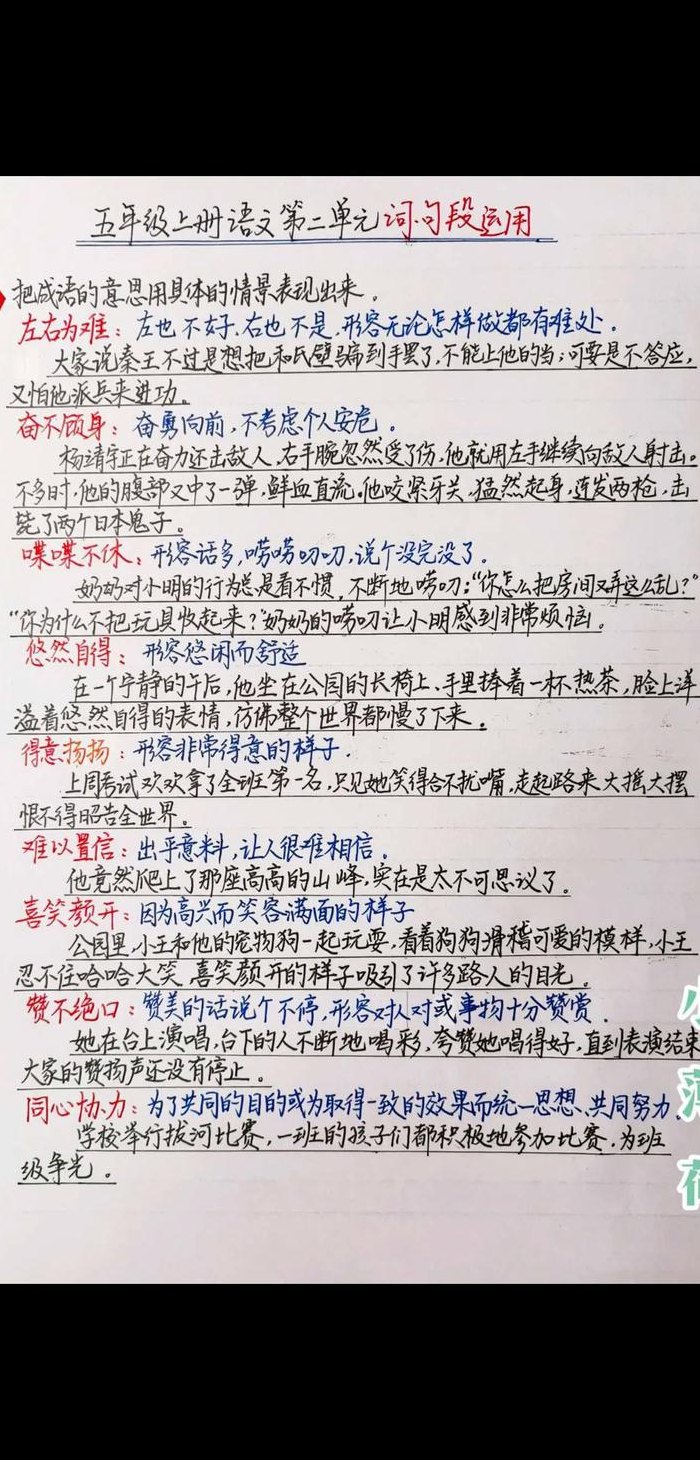 五年级上册语文第二单元词句段运用
把成语的意思用具体的情景表现出来。
左右为难：左也不好，右也不是，形容无论怎样做都有难处。
大家说秦王不过是想把和氏璧骗到手罢了，不能上他的当；可要是不答应，
又怕他派兵来进功。
奋不顾身：奋勇向前，不考虑个人安危。
杨靖宇正在奋力还击敌人，右手腕忽然受了伤，他就用左手继续向敌人射击。
不多时，他的腹部又中了一弹，鲜血直流。他咬紧牙关，猛然起身，连发两枪，击
毙了两个日本鬼子。
喋喋不休：形容话多，唠唠叨叨，说个没完没了。
奶奶对小明的行为总是看不惯，不断地唠叨：“你怎么把房间又弄这么乱？”
“你为什么不把玩具收起来？”奶奶的唠叨让小明感到非常烦恼。
悠然自得：形容悠闲而舒适
在一个宁静的午后，他坐在公园的长椅上、手里捧着一杯热茶，脸上洋
溢着悠然自得的表情，仿佛整个世界都慢了下来。
得意扬扬：形容非常得意的样子．
上周考试欢欢拿了全班第一名，只见她笑得合不扰嘴，走起路来大摇大摆
恨不得昭告全世界。
难以置信：出乎意料，让人很难相信。
他竟然爬上了那座高高的山峰，实在是太不可思议了。
喜笑颜开：因为高兴而笑容满面的样子
公园里，小王和他的宠物狗一起玩耍，看着狗狗滑稽可爱的模样，小王
忍不住哈哈大笑，喜笑颜开的样子吸引了许多路人的目光。
赞不绝口：赞美的话说个不停，形容对人对或事物十分赞赏．
她在台上演唱，台下的人不断地喝彩，夸赞她唱得好，直到表演结束
大家的赞扬声还没有停止。
同心协力：为了共同的目的或为取得一致的效果而统一思想、共同努力．
学校举行拔河比赛，一班的孩子们都积极地参加比赛，为班
级争光。